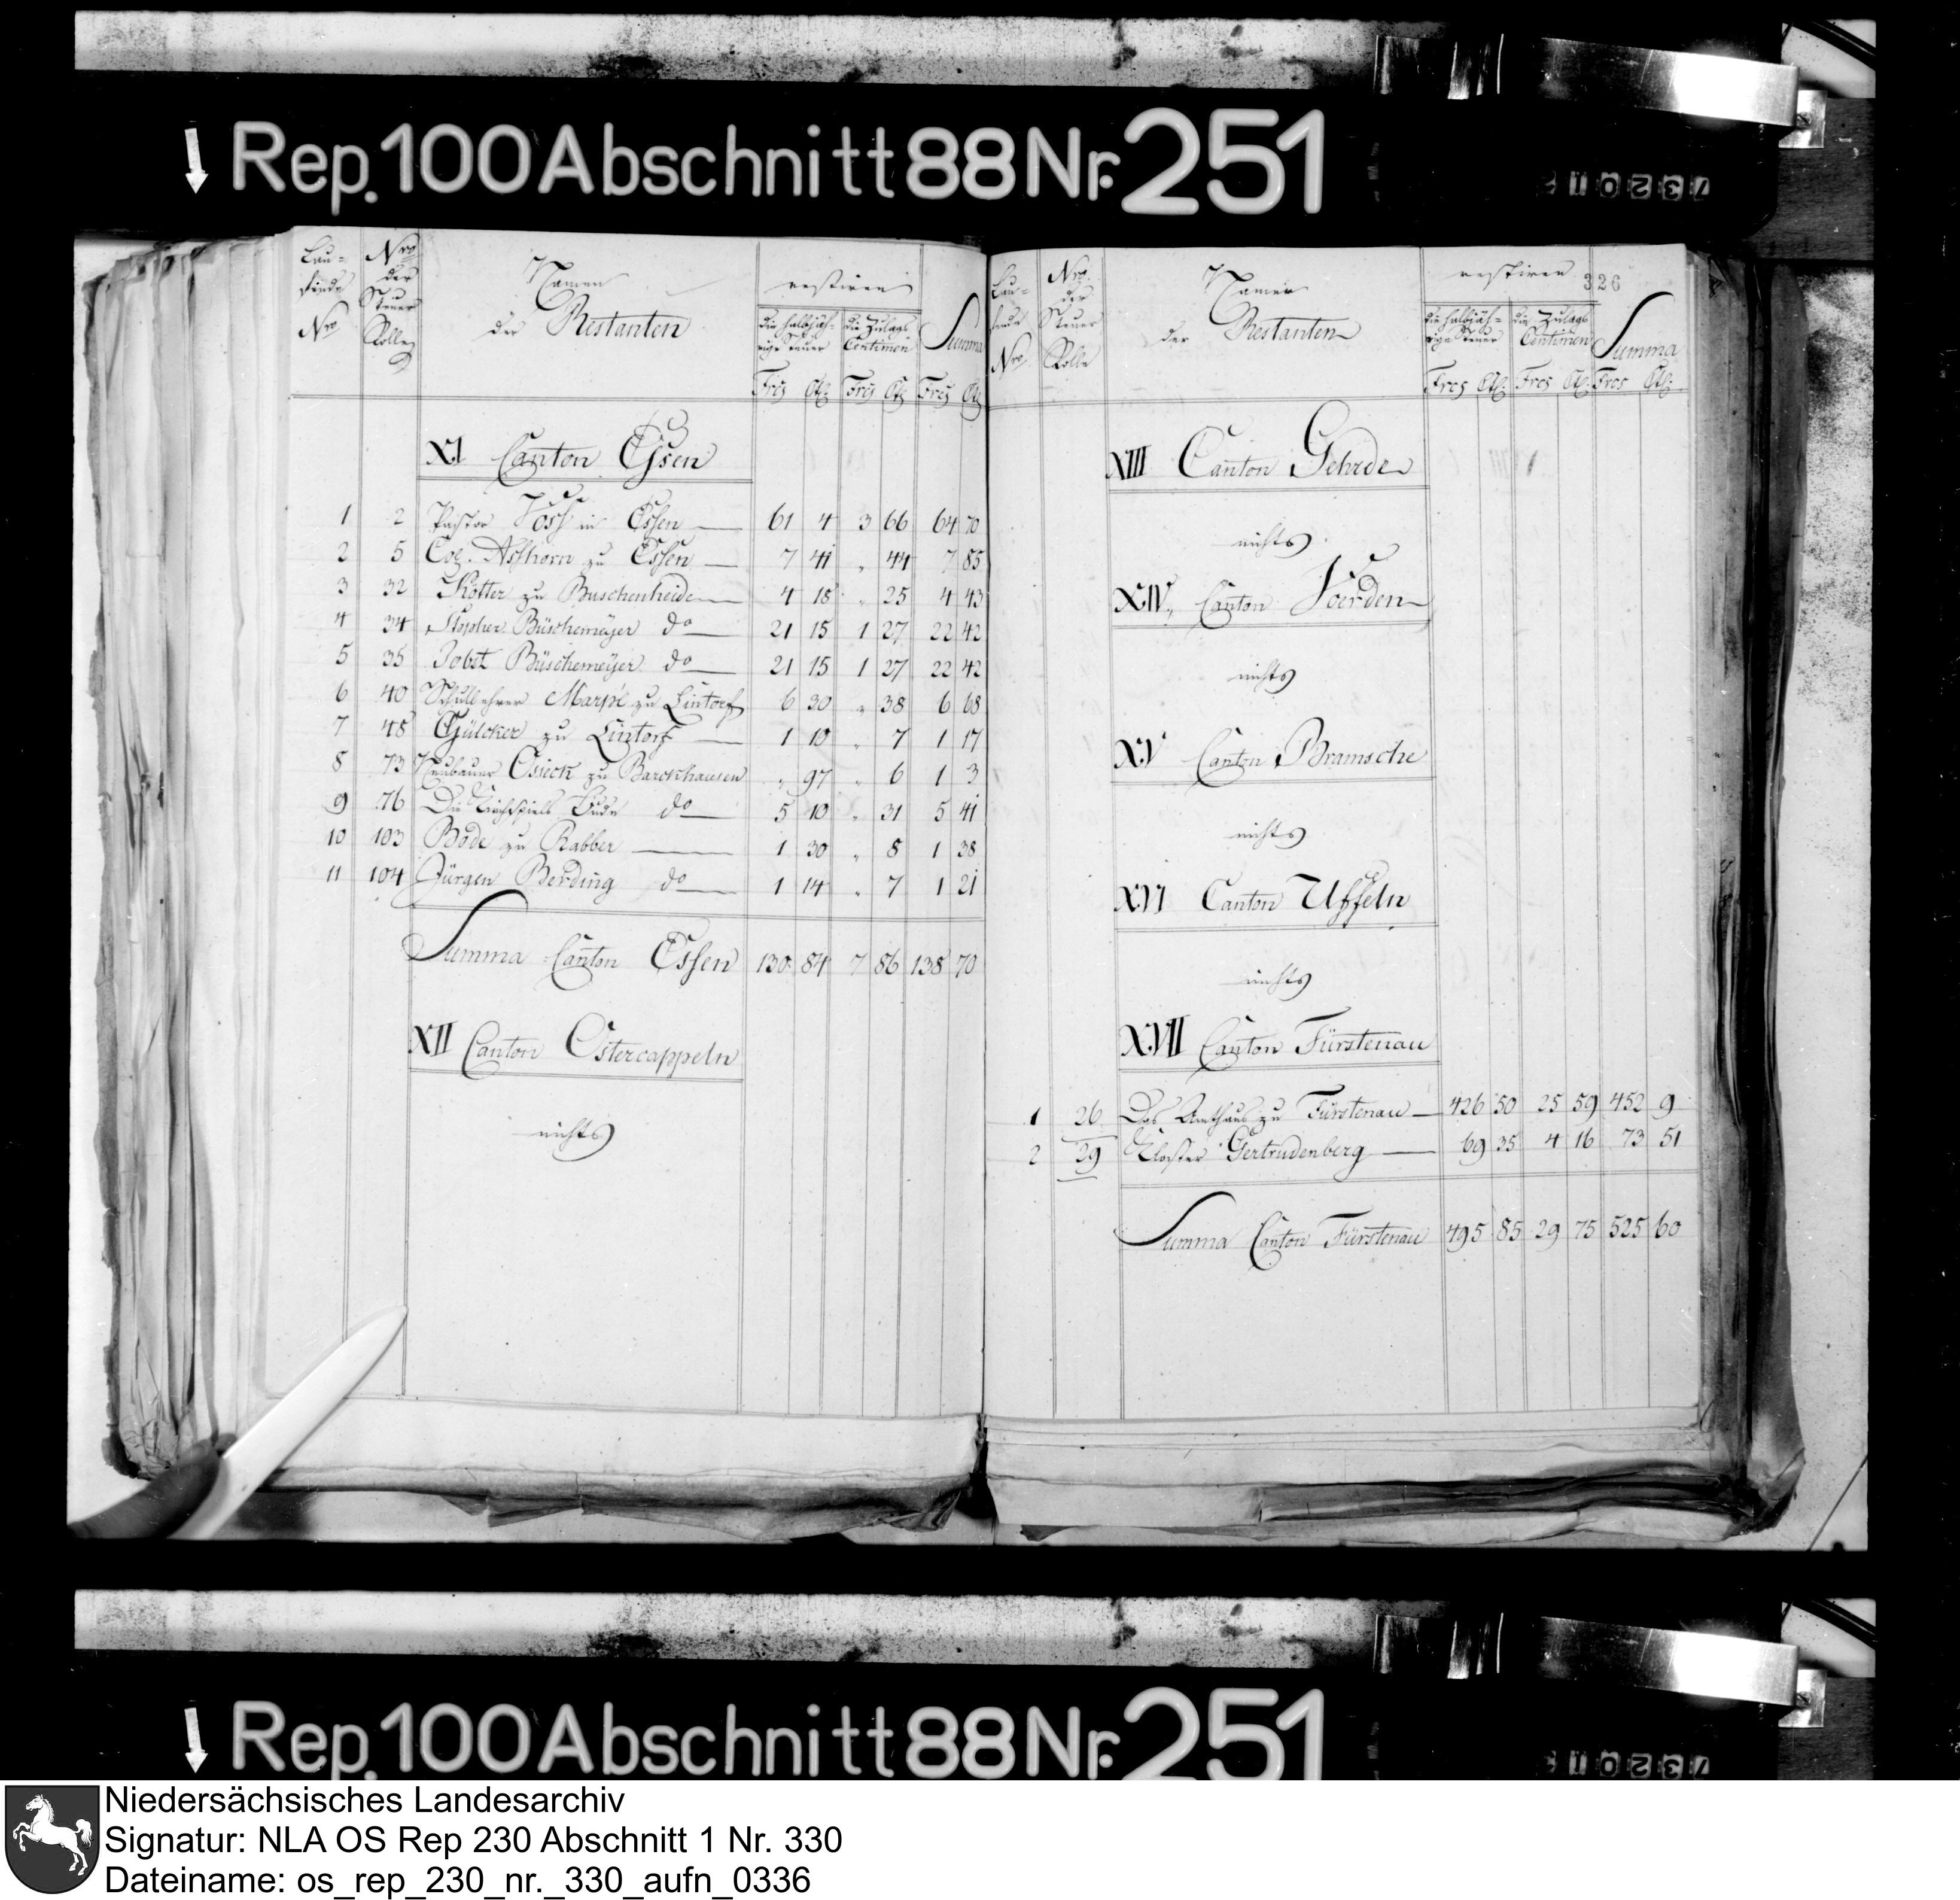 Rep. 100 Abschnitt 88 Nr. 251
Lau-
fende
Nro
Nro
der
Steuer
Rolle
Namen
der Restanten
restiren
die halbjäh-
rige Steuer
die Zulags
Centimen
Summa
Frcs Cts Frcs Cts Frcs Cts
XI Canton Essen
1 2 Pastor Voss in Essen 61 4 3 66 64 70
2 5 Col. Asshorn zu Essen 7 41 „ 44 7 85
3 32 Kötter zu Buschenheide 4 18 „ 25 4 43
4 34 Stopher Büschemeyer do 21 15 1 27 22 42
5 35 Jobst Büschemeyer do 21 15 1 27 22 42
6 40 Schullehrer Marpé zu Lintorf 6 30 „ 38 6 68
7 48 Gülcker zu Lintorf 1 10 „ 7 1 17
8 73 Neubauer Osieck zu Barckhausen „ 97 „ 6 1 3
9 76 Die Kirchspiels do 5 10 „ 31 5 41
10 103 Bode zu Rabber 1 30 „ 8 1 38
11 104 Jürgen Berding do 1 14 „ 7 1 21
Summa Canton Essen 130 84 7 86 138 70
XII Canton Ostercappeln
nichts
326
Lau-
fende
Nro
Nro.
der
Steuer
Rolle
Namen
der Restanten
restiren
die halbjäh-
rige Steuer
die Zulags
Centimen
Summa
Frcs Cts. Frcs Cts. Frcs Cts.
XIII Canton Gehrde
nichts
XIV. Canton Voerden
nichts
XV Canton Bramsche
nichts
XVI Canton Uffeln
nichts
XVII Canton Fürstenau
1 26 Das Amthaus zu Fürstenau 426 50 25 59 452 9
2 29 Kloster Gertrudenberg 69 35 4 16 73 51
Summa Canton Fürstenau 495 85 29 75 525 60
Rep. 100 Abschnitt 88 Nr. 251
Niedersächsisches Landesarchiv
Signatur: NLA OS Rep 230 Abschnitt 1 Nr. 330
Dateiname: os_rep_230_nr._330_aufn_0336